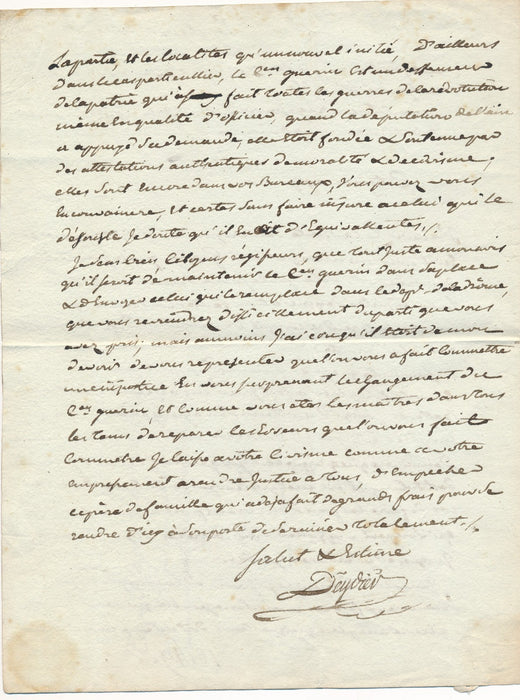 La partie, et les localités qu'un nouvel initié, D'ailleurs
dans le cas particulier, le C.en guerin Est un deffenseur
de la patrie qui a fait toutes les guerres de la révolution
même En qualité d'officier, quand la députation de l'aine
a appuyé sa demande, elle Etoit fondée & soutenue par
des attestations authentiques de moralité & de civisme,
elles sont Encore dans vos Bureaux, vous pouvez vous
En convaincre, Et certes sans faire injure a celui qui le
déforte Je doute qu'il En ait d'Equivallentes ./.
Je sens bien Citoyens régisseurs, que tout juste a mon avis
qu'il seroit de maintenir le C.en guerin dans sa place
& d'Envoyer celui qui le remplace dans le dépt. de la drome,
que vous reviendrez difficillement du parti que vous
avez pris; mais au moins J'ai cru qu'il Etoit de mon
devoir de vous représenter que l'on vous a fait Commettre
une injustice En vous proprenant le changement du
C.en guerin, Et comme vous etes les maîtres dans tous
les tems de reparer les Erreurs que l'on vous fait
Commetre Je laisse a votre Civisme comme a votre
Empressement a rendre Justice a tous, d'Empecher
ce père de famille qui a deja fait de grands frais pour se
rendre d'ici à son poste de se ruiner totalement ./.
Salut & Estime
Deydier